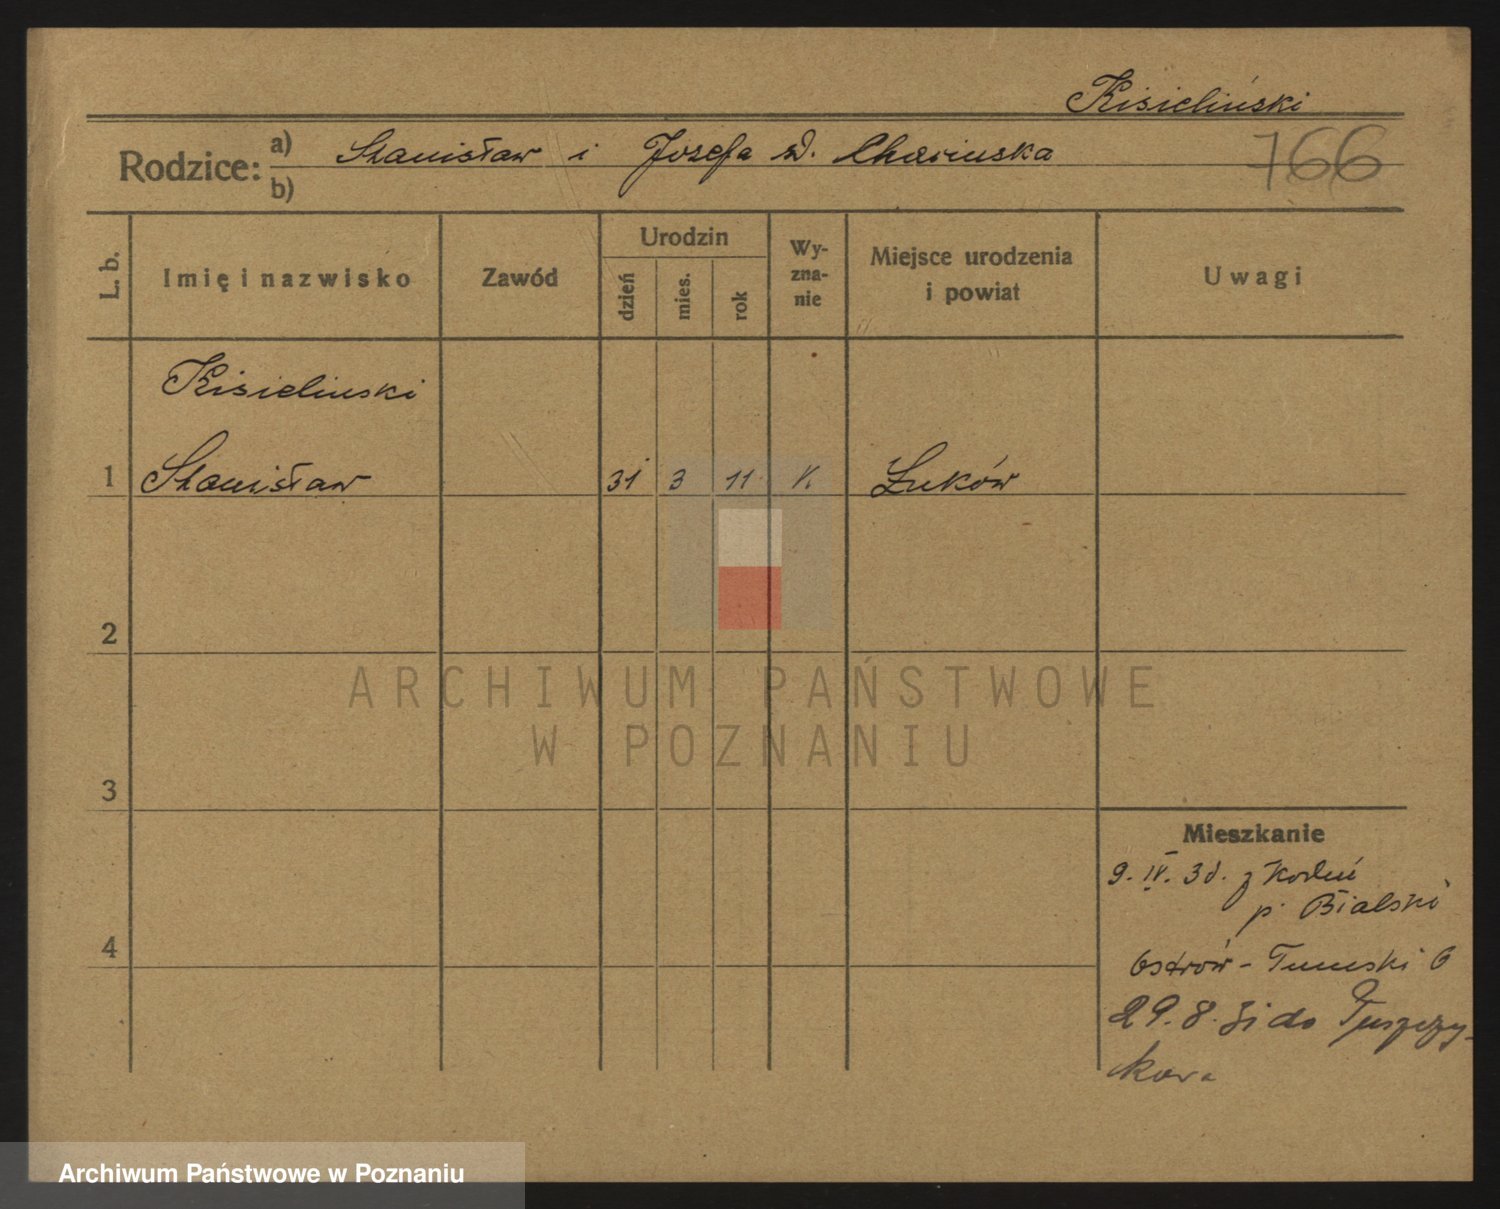 Kisieliński
Rodzice: a) Stanisław i Józefa zd.
b)
766
L. b.
Imię i nazwisko
Zawód
Urodzin
dzień
mies.
rok
Wy-
zna-
nie
Miejsce urodzenia
i powiat
Uwagi
Kisielinski
1 Stanisław 31 3 11 K. Łuków
2
3
4
Mieszkanie
9. IV. 38. z Kodeń
p. Bialski
Ostrów - Tumski 6
29. 8. 31 do
ARCHIWUM PAŃSTWOWE
W POZNANIU
Archiwum Państwowe w Poznaniu